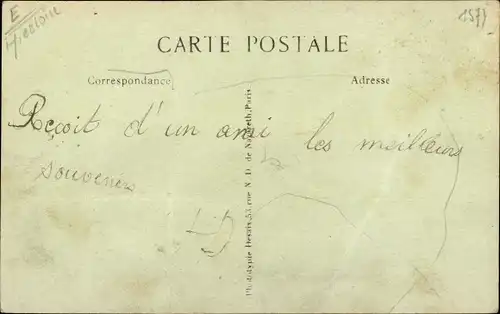 E
1571
CARTE POSTALE
Correspondance
Adresse
Reçoit d'un ami les meilleurs
souvenirs
Phototypie Desaix, 53, rue N. D. de Nazareth, Paris